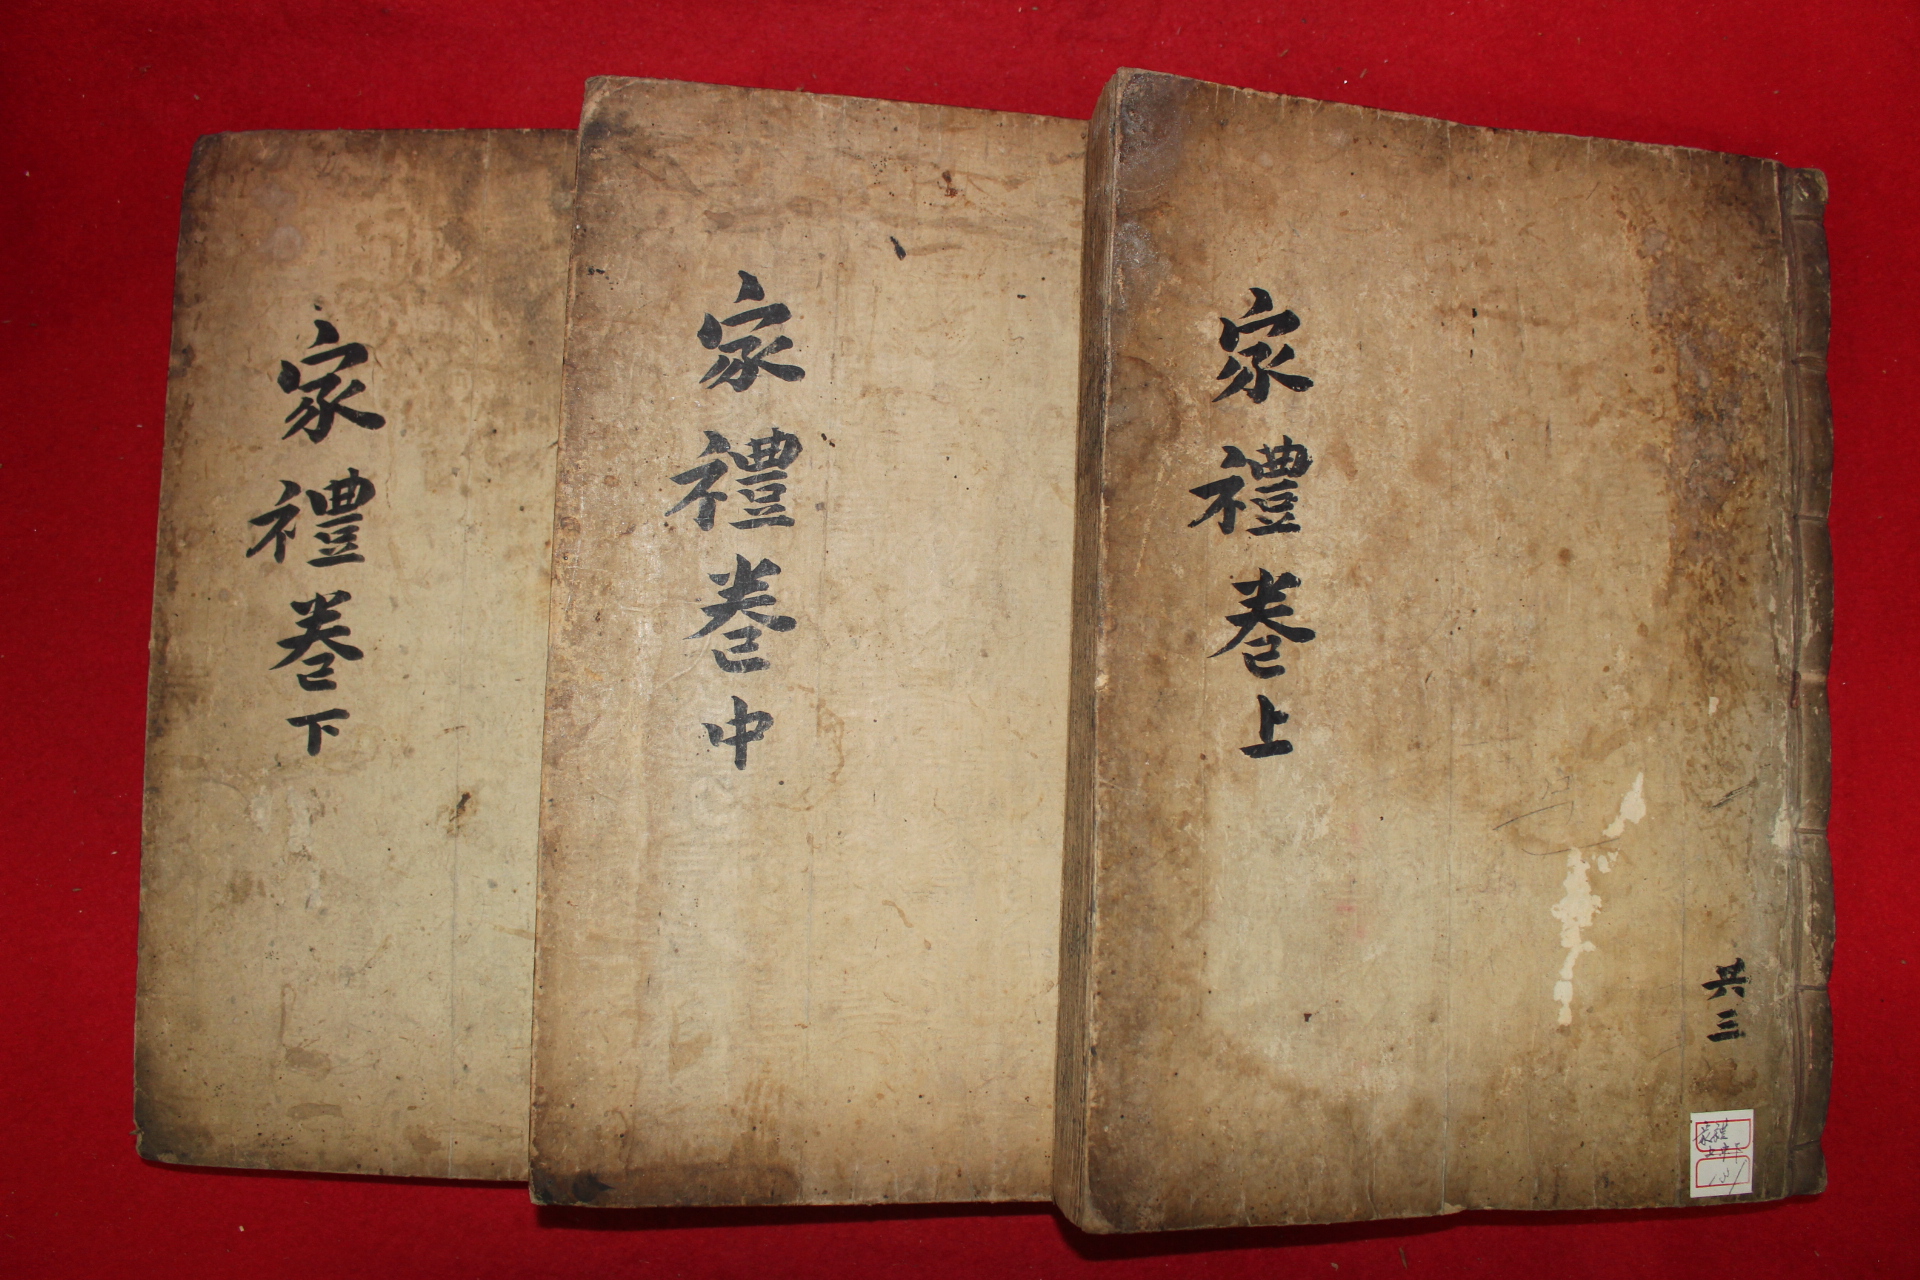 家禮卷上
共三
家禮
上中下
家禮卷中
家禮卷下